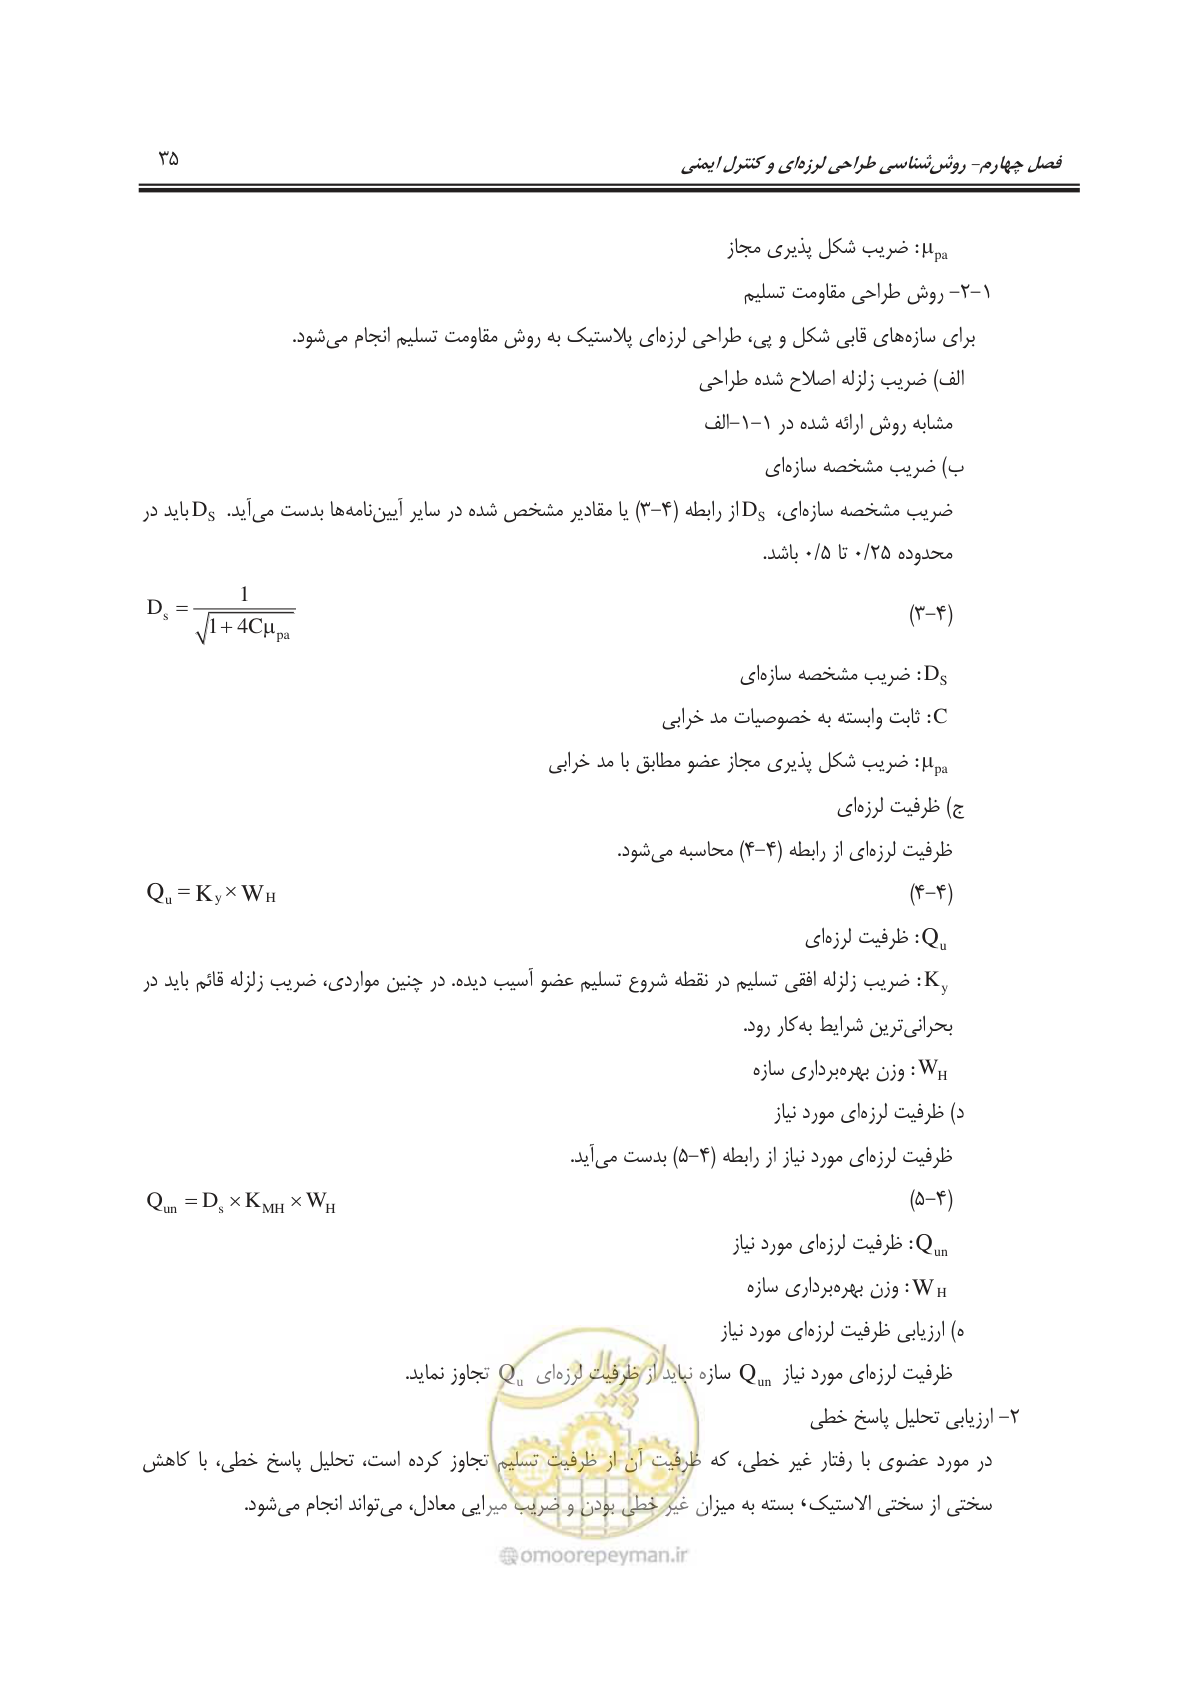 فصل چهارم- روش‌شناسی طراحی لرزه‌ای و کنترل ایمنی ۳۵
μpa: ضریب شکل پذیری مجاز
۱-۲- روش طراحی مقاومت تسلیم
برای سازه‌های قابی شکل و پی، طراحی لرزه‌ای پلاستیک به روش مقاومت تسلیم انجام می‌شود.
الف) ضریب زلزله اصلاح شده طراحی
مشابه روش ارائه شده در ۱-۱-الف
ب) ضریب مشخصه سازه‌ای
ضریب مشخصه سازه‌ای، DS از رابطه (۴-۳) یا مقادیر مشخص شده در سایر آیین‌نامه‌ها بدست می‌آید. DS باید در
محدوده ۰/۲۵ تا ۰/۵ باشد.
(۴-۳) Ds = 1 / √(1 + 4Cμpa)
DS: ضریب مشخصه سازه‌ای
C: ثابت وابسته به خصوصیات مد خرابی
μpa: ضریب شکل پذیری مجاز عضو مطابق با مد خرابی
ج) ظرفیت لرزه‌ای
ظرفیت لرزه‌ای از رابطه (۴-۴) محاسبه می‌شود.
(۴-۴) Qu = Ky × WH
Qu: ظرفیت لرزه‌ای
Ky: ضریب زلزله افقی تسلیم در نقطه شروع تسلیم عضو آسیب دیده. در چنین مواردی، ضریب زلزله قائم باید در
بحرانی‌ترین شرایط به‌کار رود.
WH: وزن بهره‌برداری سازه
د) ظرفیت لرزه‌ای مورد نیاز
ظرفیت لرزه‌ای مورد نیاز از رابطه (۴-۵) بدست می‌آید.
(۴-۵) Qun = Ds × KMH × WH
Qun: ظرفیت لرزه‌ای مورد نیاز
WH: وزن بهره‌برداری سازه
ه) ارزیابی ظرفیت لرزه‌ای مورد نیاز
ظرفیت لرزه‌ای مورد نیاز Qun سازه نباید از ظرفیت لرزه‌ای Qu تجاوز نماید.
۲- ارزیابی تحلیل پاسخ خطی
در مورد عضوی با رفتار غیر خطی، که ظرفیت آن از ظرفیت تسلیم تجاوز کرده است، تحلیل پاسخ خطی، با کاهش
سختی از سختی الاستیک، بسته به میزان غیر خطی بودن و ضریب میرایی معادل، می‌تواند انجام می‌شود.
امور پیمان
@omoorepeyman.ir